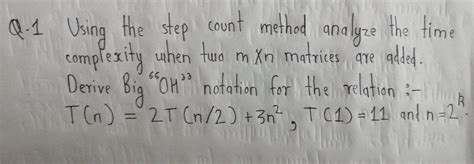 Q.1 Using the step count method analyze the time
complexity when two m×n matrices are added.
Derive Big "OH" notation for the relation :-
T(n) = 2T(n/2) + 3n², T(1) = 11 and n = 2ᵏ.